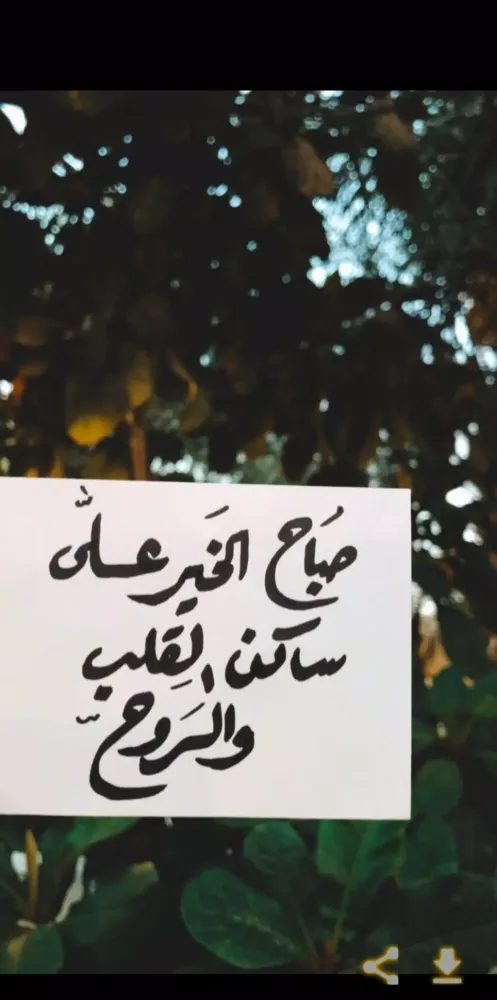 صباح الخير على
ساكن القلب
والروح